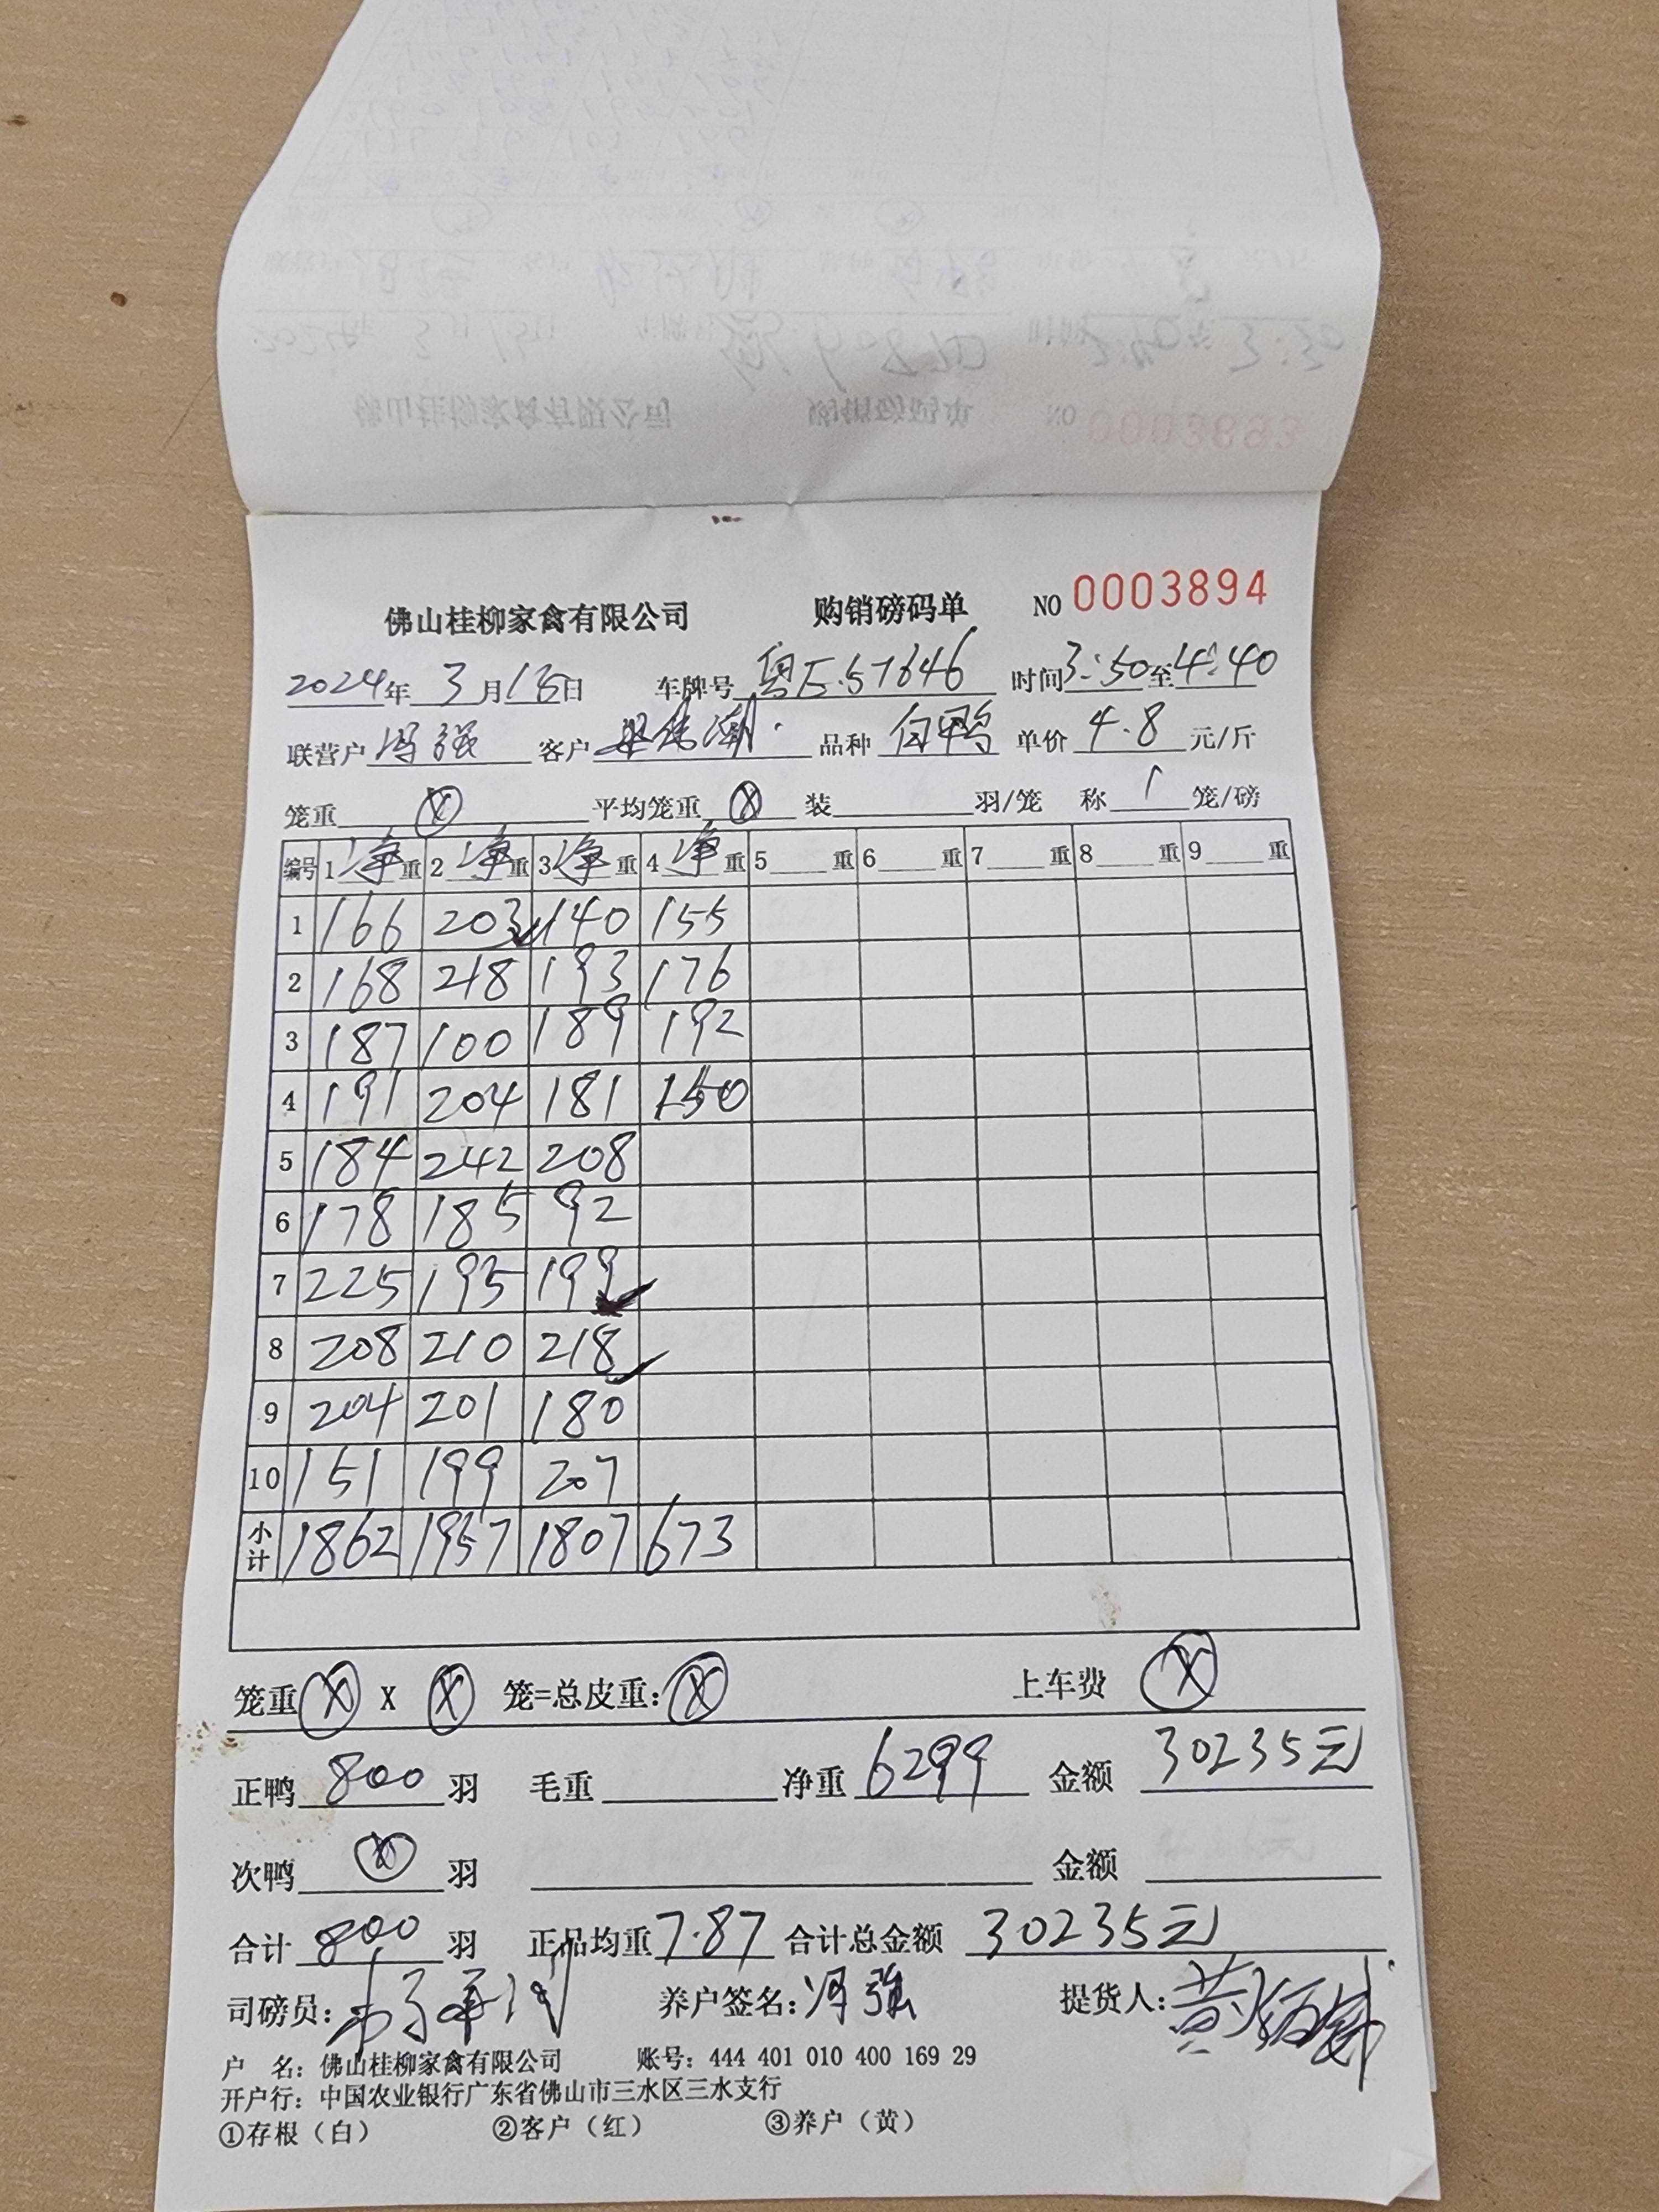 佛山桂柳家禽有限公司 购销磅码单 NO 0003894
2024年 3月15日 车牌号 粤E.57646 时间3:50至4:40
联营户 冯强 客户 品种 白鸭 单价 4.8 元/斤
笼重 ⓧ 平均笼重 ⓧ 装 羽/笼 称 1 笼/磅
编号 1 净 重 2 净 重 3 净 重 4 净 重 5 重 6 重 7 重 8 重 9 重
1 166 203 140 155
2 168 218 193 176
3 187 100 189 192
4 191 204 181 150
5 184 242 208
6 178 185 92
7 225 195 199
8 208 210 218
9 204 201 180
10 151 199 207
小计 1862 1957 1807 673
笼重 ⓧ X ⓧ 笼=总皮重: ⓧ 上车费 ⓧ
正鸭 800 羽 毛重 净重 6299 金额 30235元
次鸭 ⓧ 羽 金额
合计 800 羽 正品均重 7.87 合计总金额 30235元
司磅员: 养户签名: 冯强 提货人:
户 名: 佛山桂柳家禽有限公司 账号: 444 401 010 400 169 29
开户行: 中国农业银行广东省佛山市三水区三水支行
①存根（白） ②客户（红） ③养户（黄）